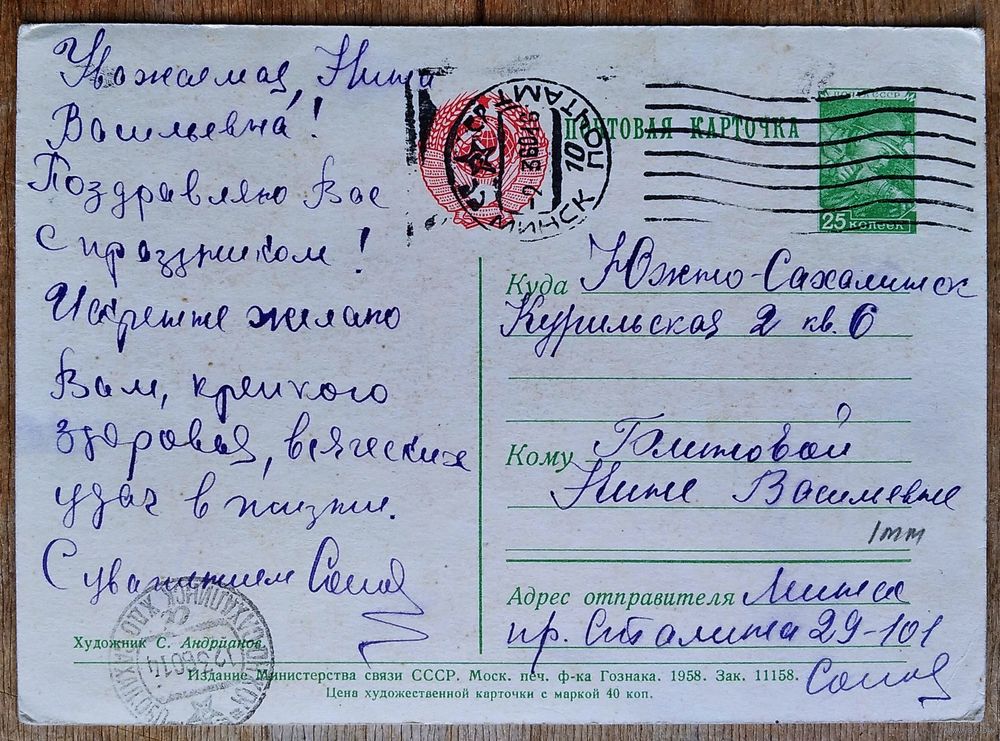 Уважаемая, Нина
Васильевна!
Поздравляю Вас
с праздником!
Искренне желаю
Вам, крепкого
здоровья, всяческих
удач в жизни.
С уважением
Художник С. Андрианов
ПОЧТА СССР
ПОЧТОВАЯ КАРТОЧКА
25 КОПЕЕК
МИНСК ПОЧТАМТ
10
Куда Южно-Сахалинск
Курильская 2 кв. 6
Кому
Нине Васильевне
1mm
Адрес отправителя Минск
пр. Сталина 29-101
Издание Министерства связи СССР. Моск. печ. ф-ка Гознака. 1958. Зак. 11158.
Цена художественной карточки с маркой 40 коп.